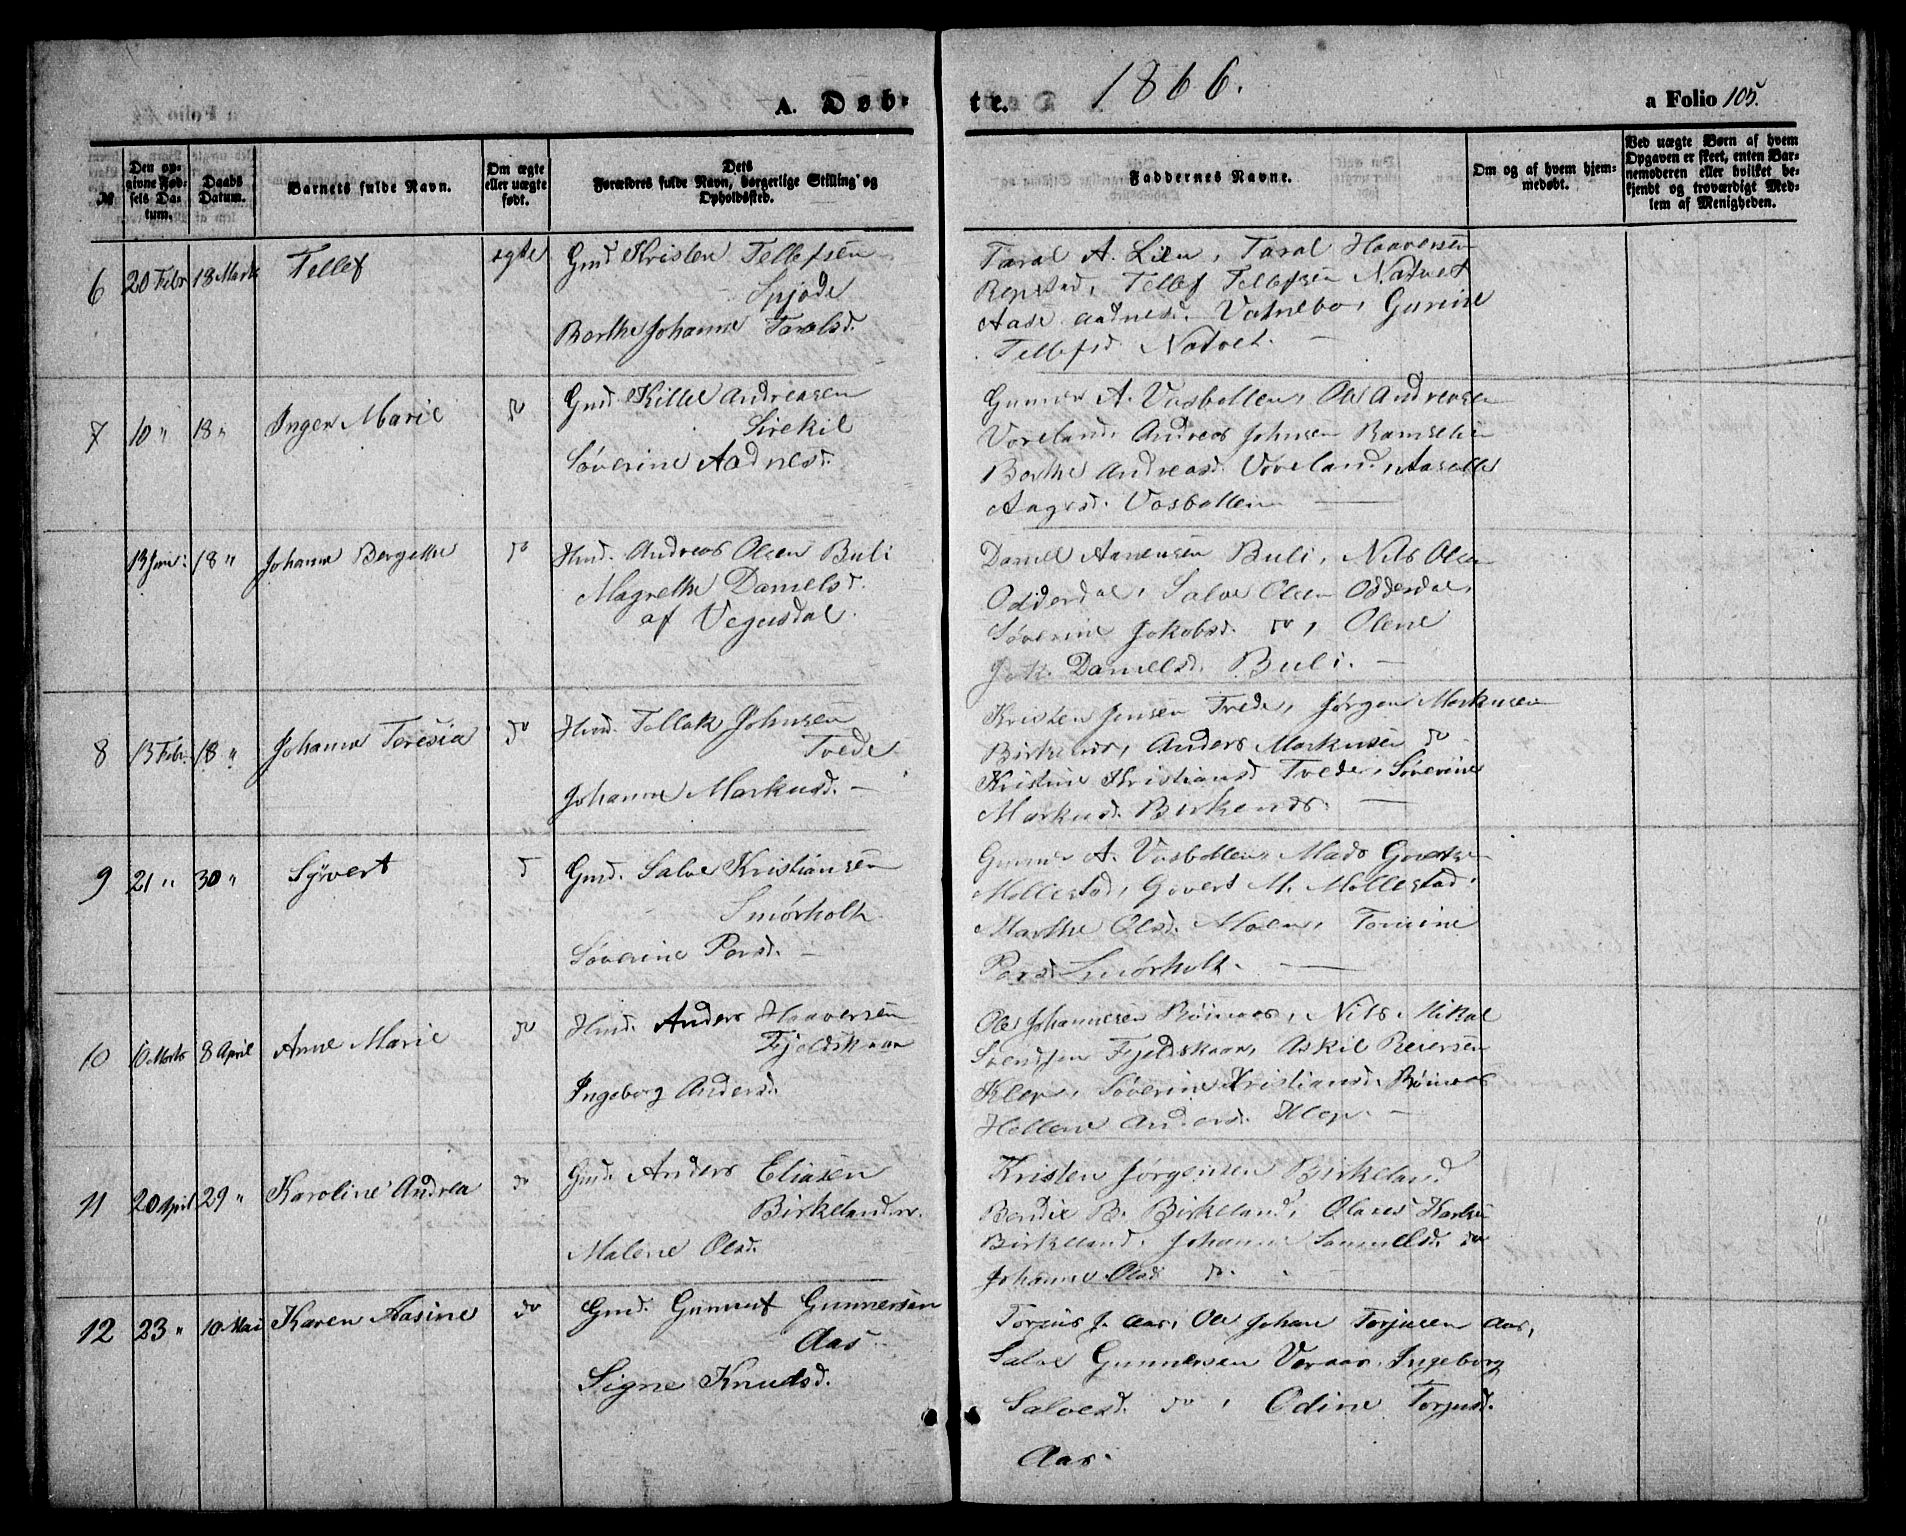 1866.
A. Døb-
te.
a Folio 105.
№
Den op-
givne Fød-
sels Da-
tum.
Daabs
Datum.
Barnets fulde Navn.
Om ægte
eller uægte
født.
Dets
Forældres fulde Navn, borgerlige Stilling og
Opholdssted.
Faddernes Navne.
Om og af hvem hjem-
medøbt.
Ved uægte Børn af hvem
Opgaven er skeet, enten Bar-
nemoderen eller hvilket be-
kjendt og troværdigt Med-
lem af Menigheden.
6 20 Febr 18 Marts Tellef ægte Gmd Kristen Tellefsen
Spjode
Barthe Johanne Taralsd.
Taral A. Lien, Taral Haaversen
Repstad, Tellef Tellefsen Natvet
Aase Aadnesd. Vatnebo, Gurine
Tellefsd. Natvet. —
7 10 " 18 " Inger Marie do Gmd. Kittel Andreasen
Sirekil
Søverine Aadnesd.
Gunner A. Vasbotten, Ole Andreasen
Voreland, Andreas Johnsen
Barthe Andreasd. Voreland,
Aagesd. Vasbotten —
13 Jan: 18 " Johanne Bergethe do Hmd. Andreas Olsen Buli
Magrethe Danielsd.
af Vegusdal.
Daniel Aanensen Buli, Nils Olsen
Odderdal, Salve Olsen Odderdal,
Søverine Jakobsd. do, Olene
Danielsd. Buli. —
8 13 Febr. 18 " Johanne Teresia do Hmd. Tollak Johnsen
Tvede
Johanne Markusd. —
Kristen Jensen Tvede, Jørgen Markusen
Birkenes, Anders Markusen do
Kristine Kristiansd Tvede, Søverine
Markusd. Birkenes. —
9 21 " 30 " Syvert d Gmd. Salve Kristiansen
Smørholt
Søverine Parsd. —
Gunner A. Vasbotten, Mads
Møllestad, Govert M. Møllestad.
Marthe Olsd. Moen, Tomine
Parsd Smørholt. —
10 10 Marts 8 April Anne Marie do Hmd. Anders Haaversen
Fjeldskaar
Ingeborg Andersd.
Ole Johannesen Røinaas, Nils Mikal
Svendsen Fjeldskaar, Askil Reiersen
Klep, Søverine Kristiansd. Røinaas
Hellene Andersd. Klep. —
11 20 April 29 " Karoline Andrea do Gmd. Anders Eliasen
Birkeland
Malene Olsd.
Kristen Jørgensen Birkeland
Bendix B. Birkeland, Olaves
Birkeland, Johanne Samuelsd. do
Johanne Olsd do. —
12 23 " 10 Mai Karen Aasine do Gmd. Gunnuf Gunnersen
Aas
Signe Knudsd.
Torjus J. Aas, Ole Johan Torjusen Aas,
Salve Gunnersen Veraas, Ingeborg
Salvesd. do, Odine Torjusd.
Aas.